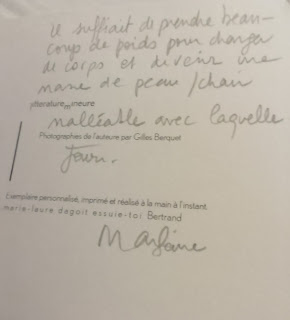 Il suffirait de prendre beau-
coup de poids pour changer
de corps et devenir une
masse de peau/chair
littérature mineure
malléable avec laquelle
Photographies de l'auteure par Gilles Berquet
jouir.
Exemplaire personnalisé, imprimé et réalisé à la main à l'instant
marie-laure dagoit essuie-toi Bertrand